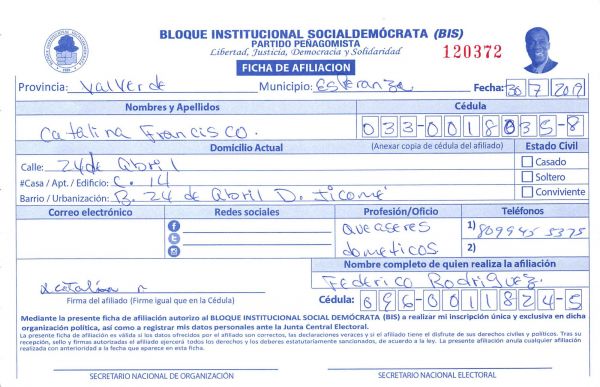 BLOQUE INSTITUCIONAL SOCIALDEMÓCRATA (BIS)
PARTIDO PEÑAGOMISTA
Libertad, Justicia, Democracia y Solidaridad
120372
FICHA DE AFILIACION
Provincia: Valverde Municipio: Esperanza Fecha: 30 7 2019
Nombres y Apellidos Cédula
Catalina Francisco. 033-0018035-8
Domicilio Actual (Anexar copia de cédula del afiliado) Estado Civil
Calle: 24 de Abril Casado
#Casa / Apt. / Edificio: C. 14 Soltero
Barrio / Urbanización: B. 24 de Abril D. Jicomé Conviviente
Correo electrónico Redes sociales Profesión/Oficio Teléfonos
queaseres 1) 809 945 5375
dometicos 2)
Nombre completo de quien realiza la afiliación
Federico Rodriguez
Firma del afiliado (Firme igual que en la Cédula) Cédula: 096-0011824-5
Mediante la presente ficha de afiliación autorizo al BLOQUE INSTITUCIONAL SOCIAL DEMÓCRATA (BIS) a realizar mi inscripción única y exclusiva en dicha
organización política, así como a registrar mis datos personales ante la Junta Central Electoral.
La presente ficha de afiliación es válida si los datos ofrecidos por el afiliado son correctos, las declaraciones veraces y si el afiliado tiene el disfrute de sus derechos civiles y políticos. Tras su
recepción, sello y firmas autorizadas el afiliado ejercerá todos los derechos y los deberes estatutariamente sancionados, de acuerdo a la ley. La presente afiliación anula cualquier afiliación
realizada con anterioridad a la fecha que aparece en esta ficha.
SECRETARIO NACIONAL DE ORGANIZACIÓN SECRETARIO NACIONAL ELECTORAL